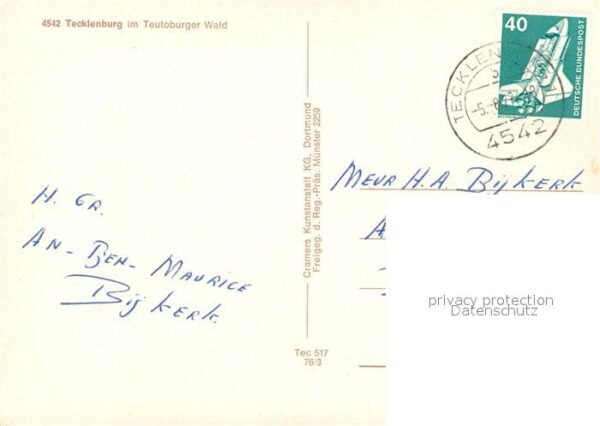 4542 Tecklenburg im Teutoburger Wald
40
DEUTSCHE BUNDESPOST
TECKLEN
4542
Cramers Kunstanstalt KG, Dortmund
Freigeg. d. Reg.-Präs. Münster 2259
MEVR H.A. Bijkerk
H. GR.
AN - BEN - MAURICE
Bijkerk
privacy protection
Datenschutz
Tec 517
76/3